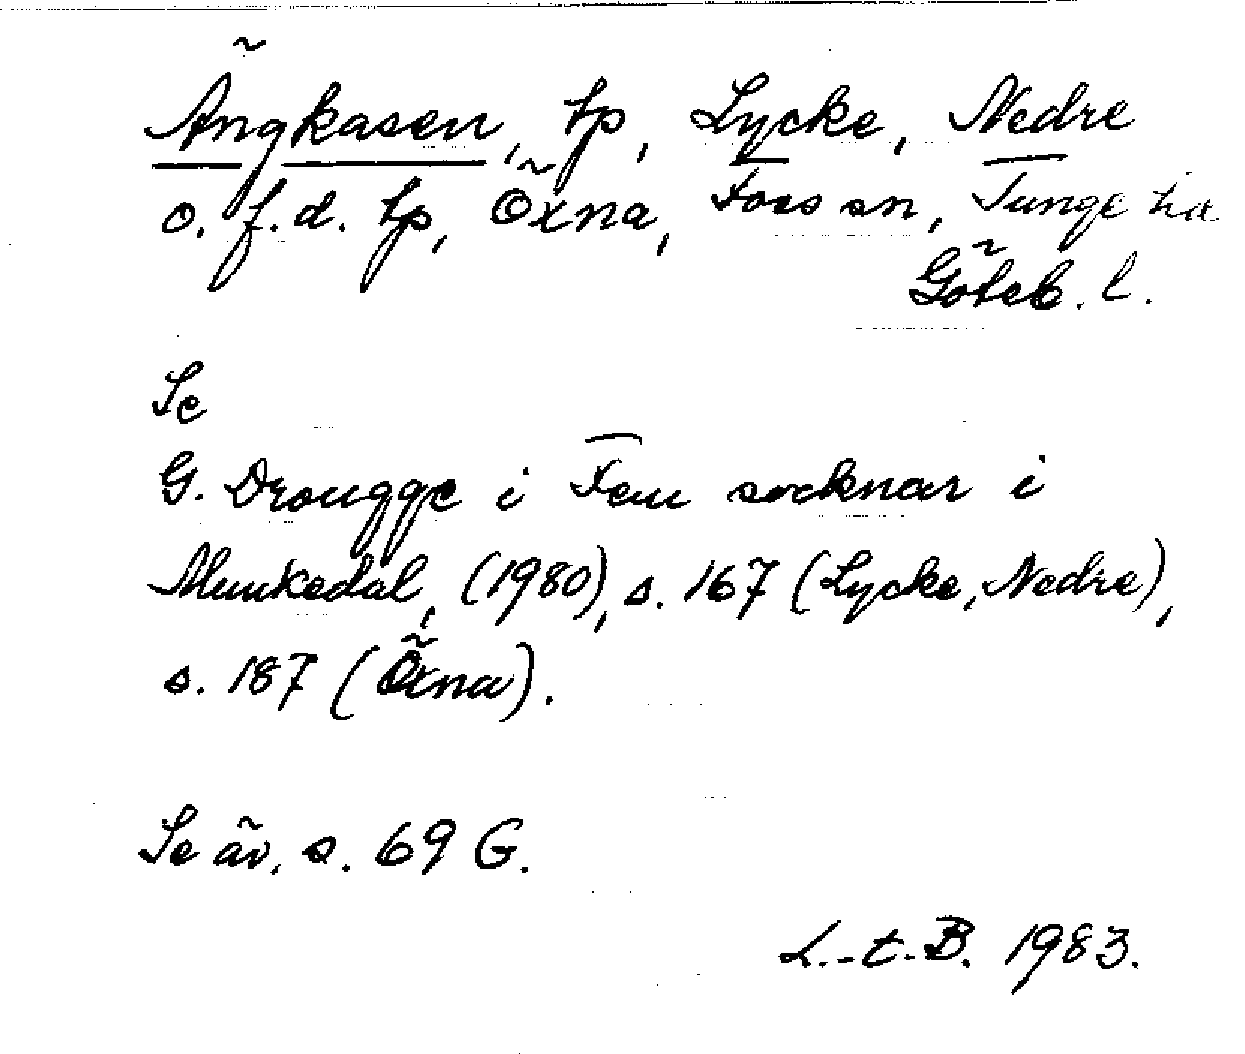 Ängkasen, tp, Lycke, Nedre
o. f.d. tp, Öxna, Foss sn, Tunge hd
Göteb. l.
Se
G. Drougge i Fem socknar i
Munkedal, (1980), s. 167 (Lycke, Nedre),
s. 187 (Öxna).
Se äv. s. 69 G.
L.-t.-B. 1983.